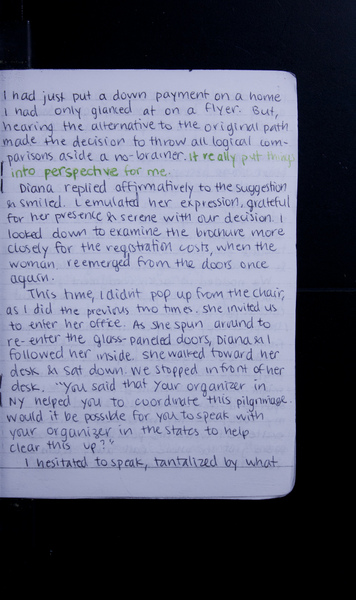 I had just put a down payment on a home
I had only glanced at on a flyer. But,
hearing the alternative to the original path
made the decision to throw all logical com-
parisons aside a no-brainer. It really put things
into perspective for me.
Diana replied affirmatively to the suggestion
& smiled. I emulated her expression, grateful
for her presence & serene with our decision. I
looked down to examine the brochure more
closely for the registration costs, when the
woman reemerged from the doors once
again.
This time, I didnt pop up from the chair,
as I did the previous two times. she invited us
to enter her office. As she spun around to
re-enter the glass-paneled doors, Diana & I
followed her inside. she walked toward her
desk & sat down. we stopped in front of her
desk. "You said that your organizer in
NY helped you to coordinate this pilgrimage.
would it be possible for you to speak with
your organizer in the states to help
clear this up?"
I hesitated to speak, tantalized by what